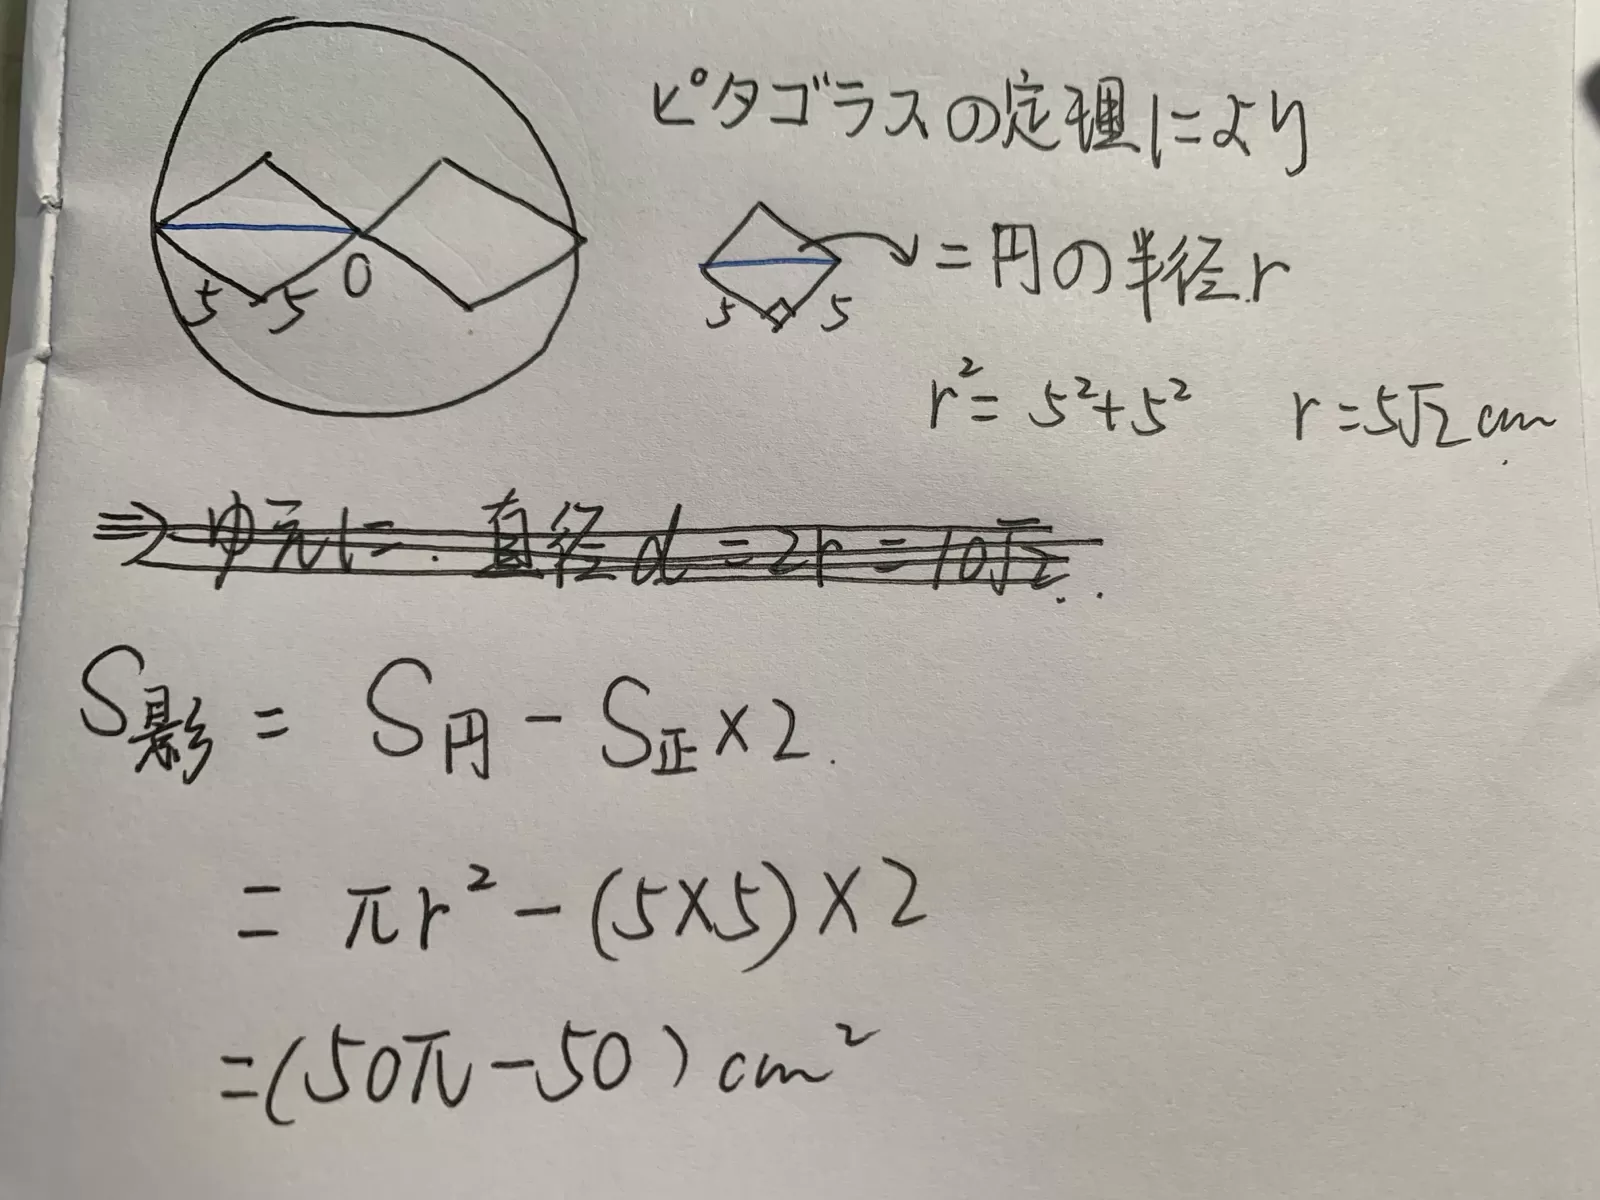 ピタゴラスの定理により
5 5 O
5 5
= 円の半径r
r² = 5²+5² r=5√2 cm
⇒ ゆえに. 直径d=2r=10√2.
S影 = S円 - S正×2.
= πr² - (5×5)×2
=(50π-50) cm²